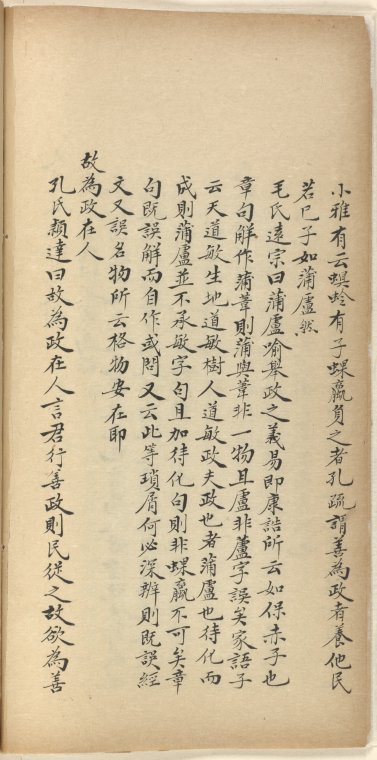 小雅有云螟蛉有子蜾蠃負之者孔疏謂善為政者養他民
若已子如蒲盧然
毛氏遠宗曰蒲盧喻舉政之義易即康誥所云如保赤子也
章句解作蒲葦則蒲與葦非一物且盧非蘆字誤矣家語子
云天道敏生地道敏樹人道敏政夫政也者蒲盧也待化而
成則蒲盧並不承敏字句且加待化句則非蜾蠃不可矣章
句既誤解而自作或問又云此等瑣屑何必深辨則既誤經
文又誤名物所云格物安在耶
故為政在人
孔氏穎達曰故為政在人言君行善政則民從之故欲為善